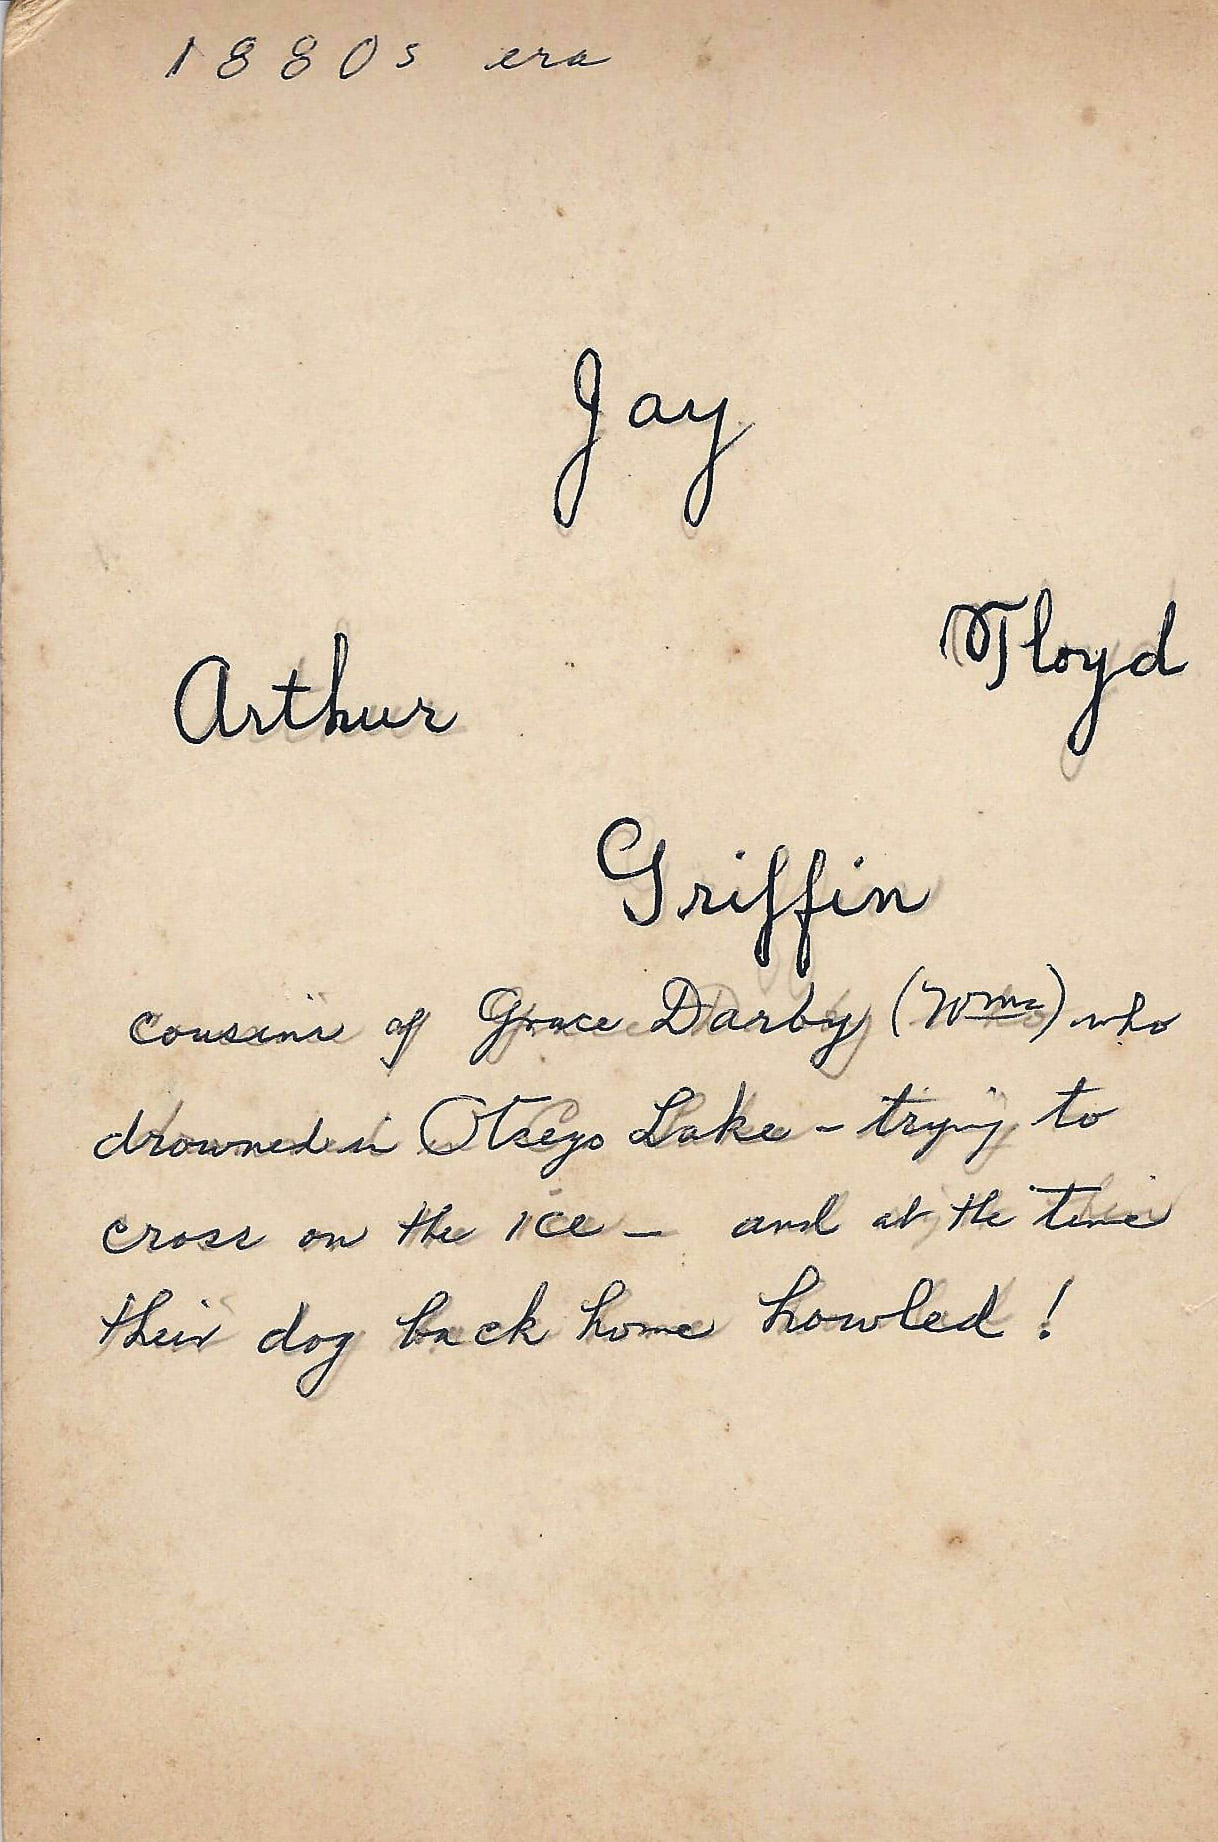 1880s era
Jay
Floyd
Arthur
Griffin
cousins of Grace Darby (Wms) who
drowned in Otsego Lake - trying to
cross on the ice - and at the time
their dog back home howled!